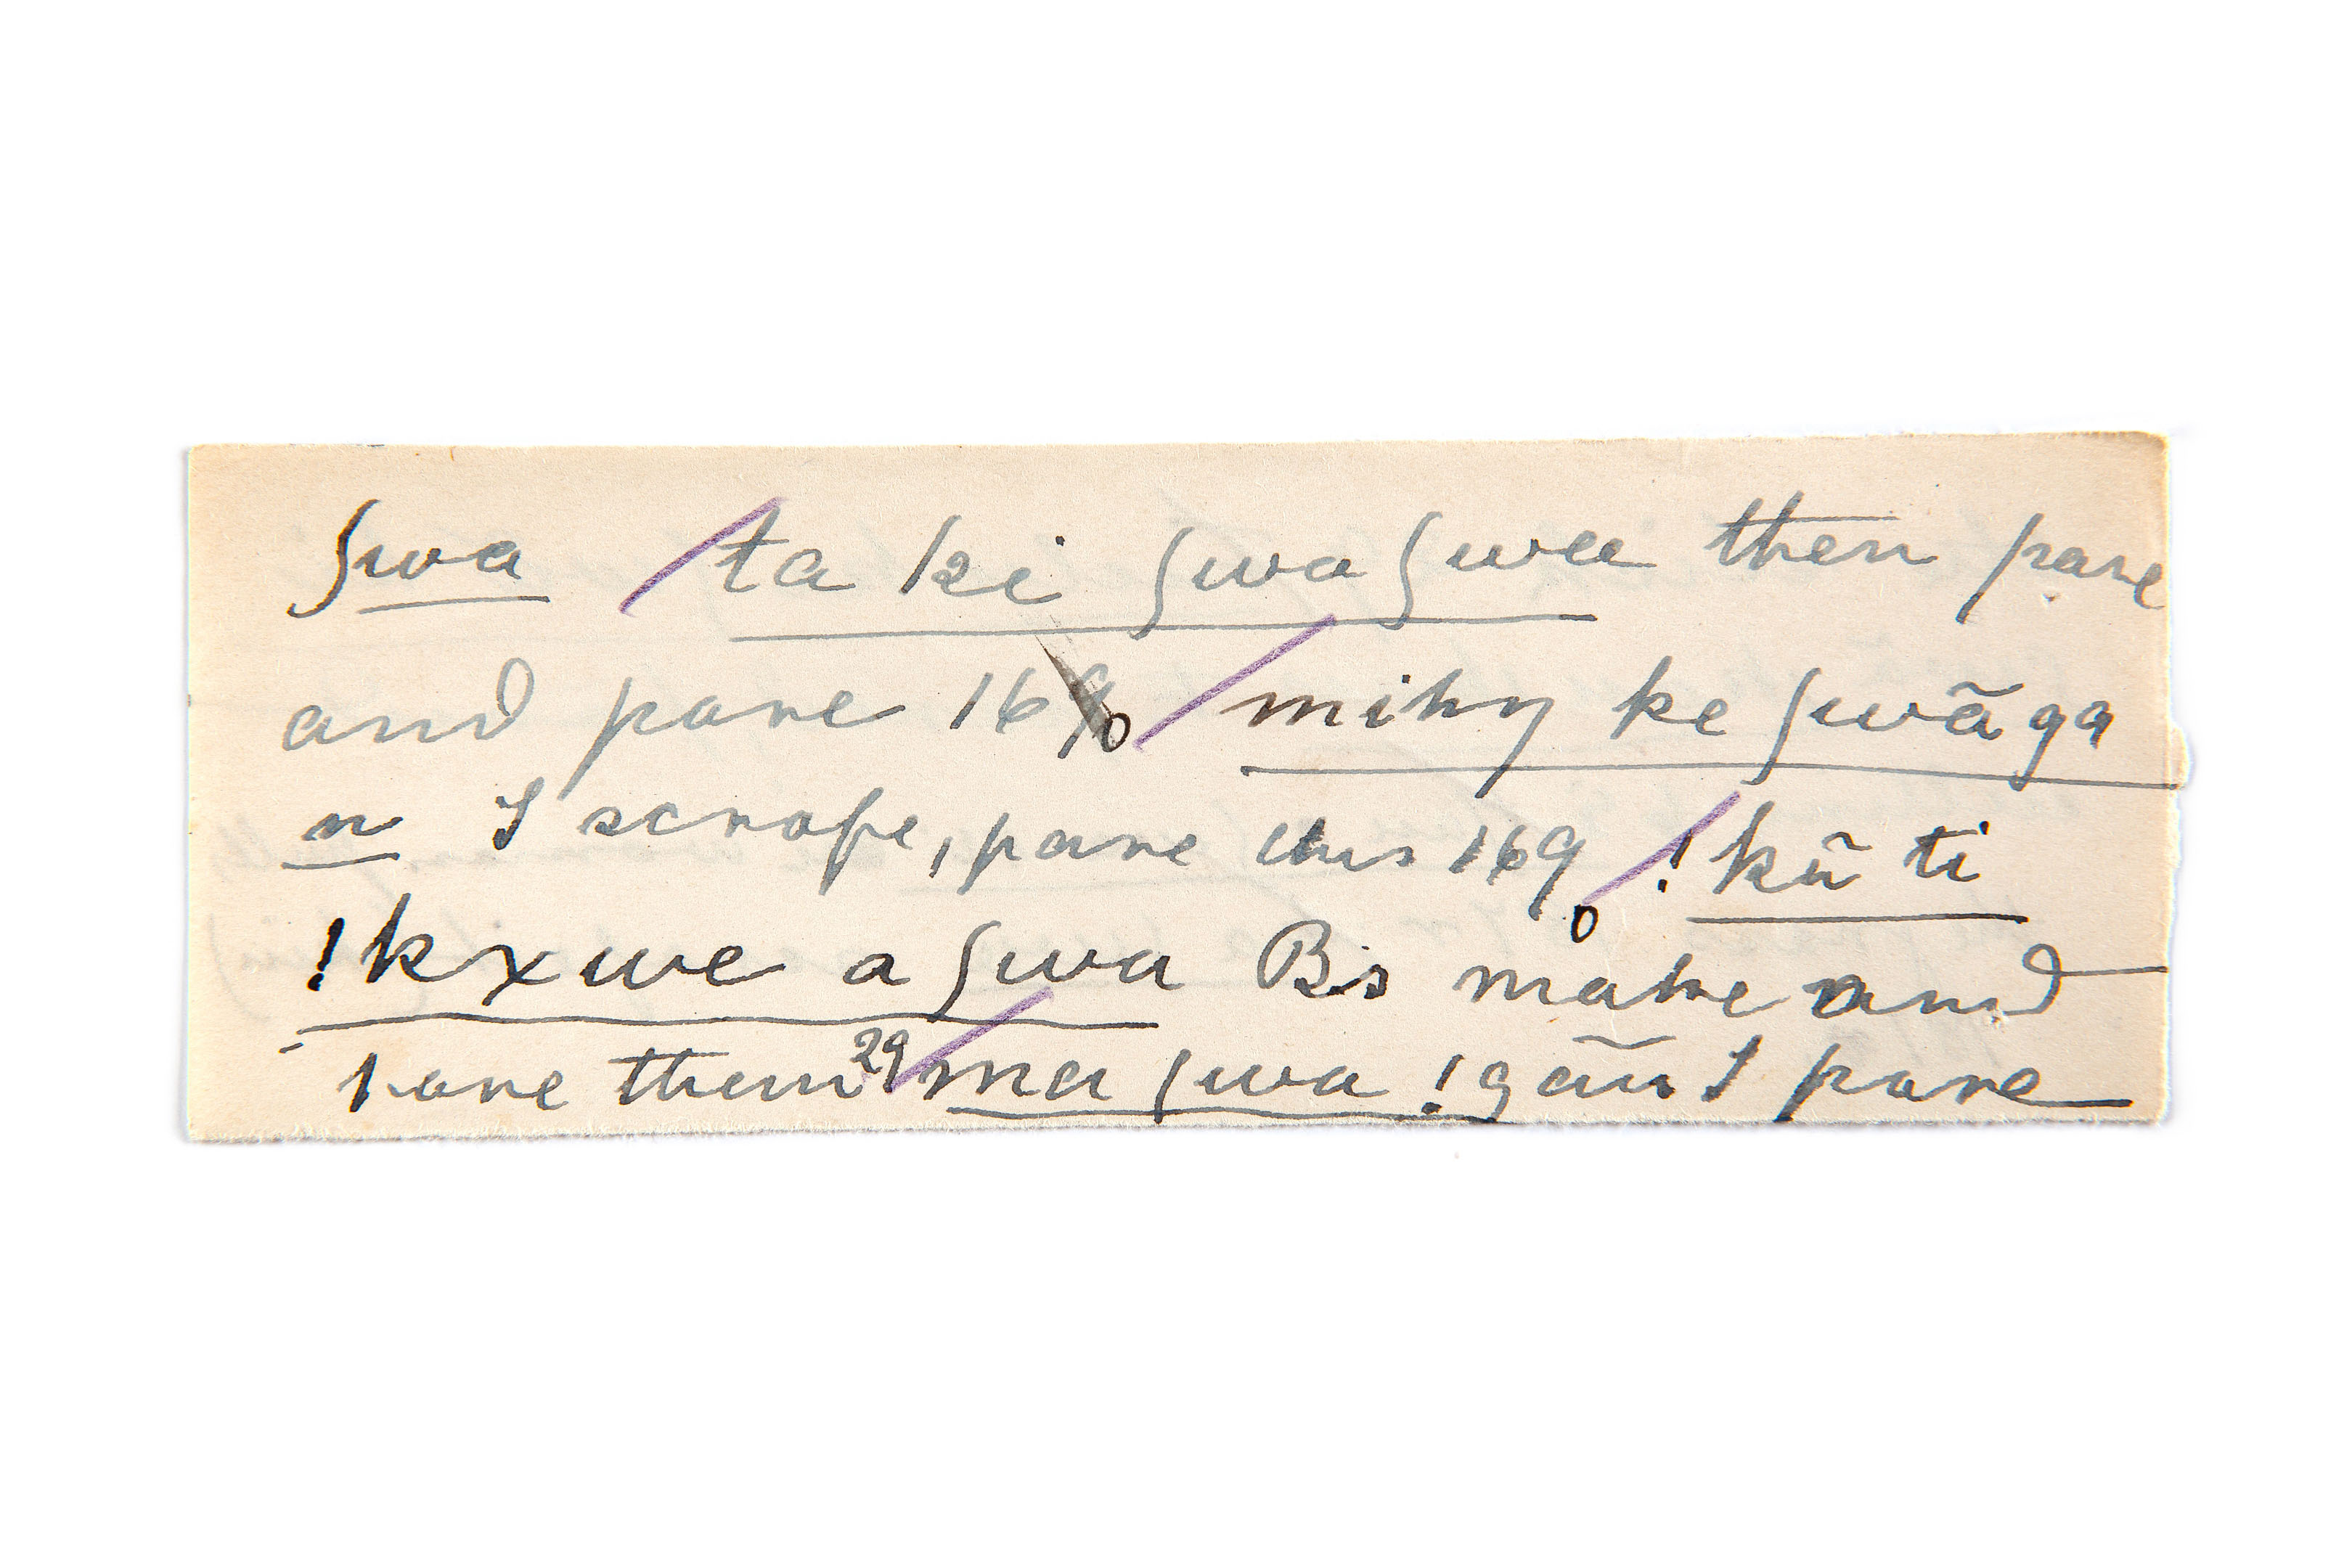 ʃwa / ta ki ʃwa ʃwee then pare
and pare 169o / mihy ke ʃwãga
n I scrape, pare this 169o / !kũ ti
!kxwe a ʃwa Bs make and
pare them 29 / ma ʃwa !gãũ I pare